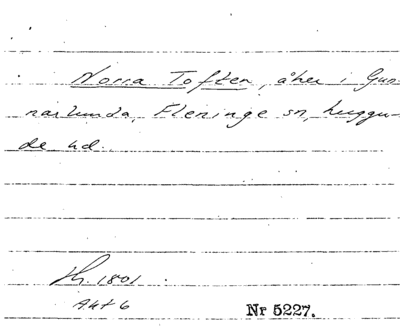 Norra Toften, åker i Gun-
narlunda, Fleninge sn, Luggu-
de hd.
Sk. 1801
Akt 6
Nr 5227.